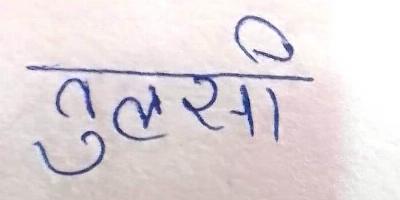 तुलसी